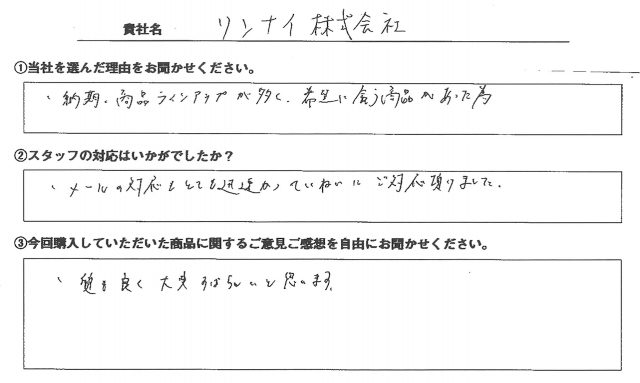 貴社名 リンナイ株式会社
①当社を選んだ理由をお聞かせください。
、納期、商品ラインアップが多く、希望に合う商品があった為
②スタッフの対応はいかがでしたか？
、メールの対応もとても迅速かつていねいにご対応頂けました。
③今回購入していただいた商品に関するご意見ご感想を自由にお聞かせください。
、質も良く大変すばらしいと思います。